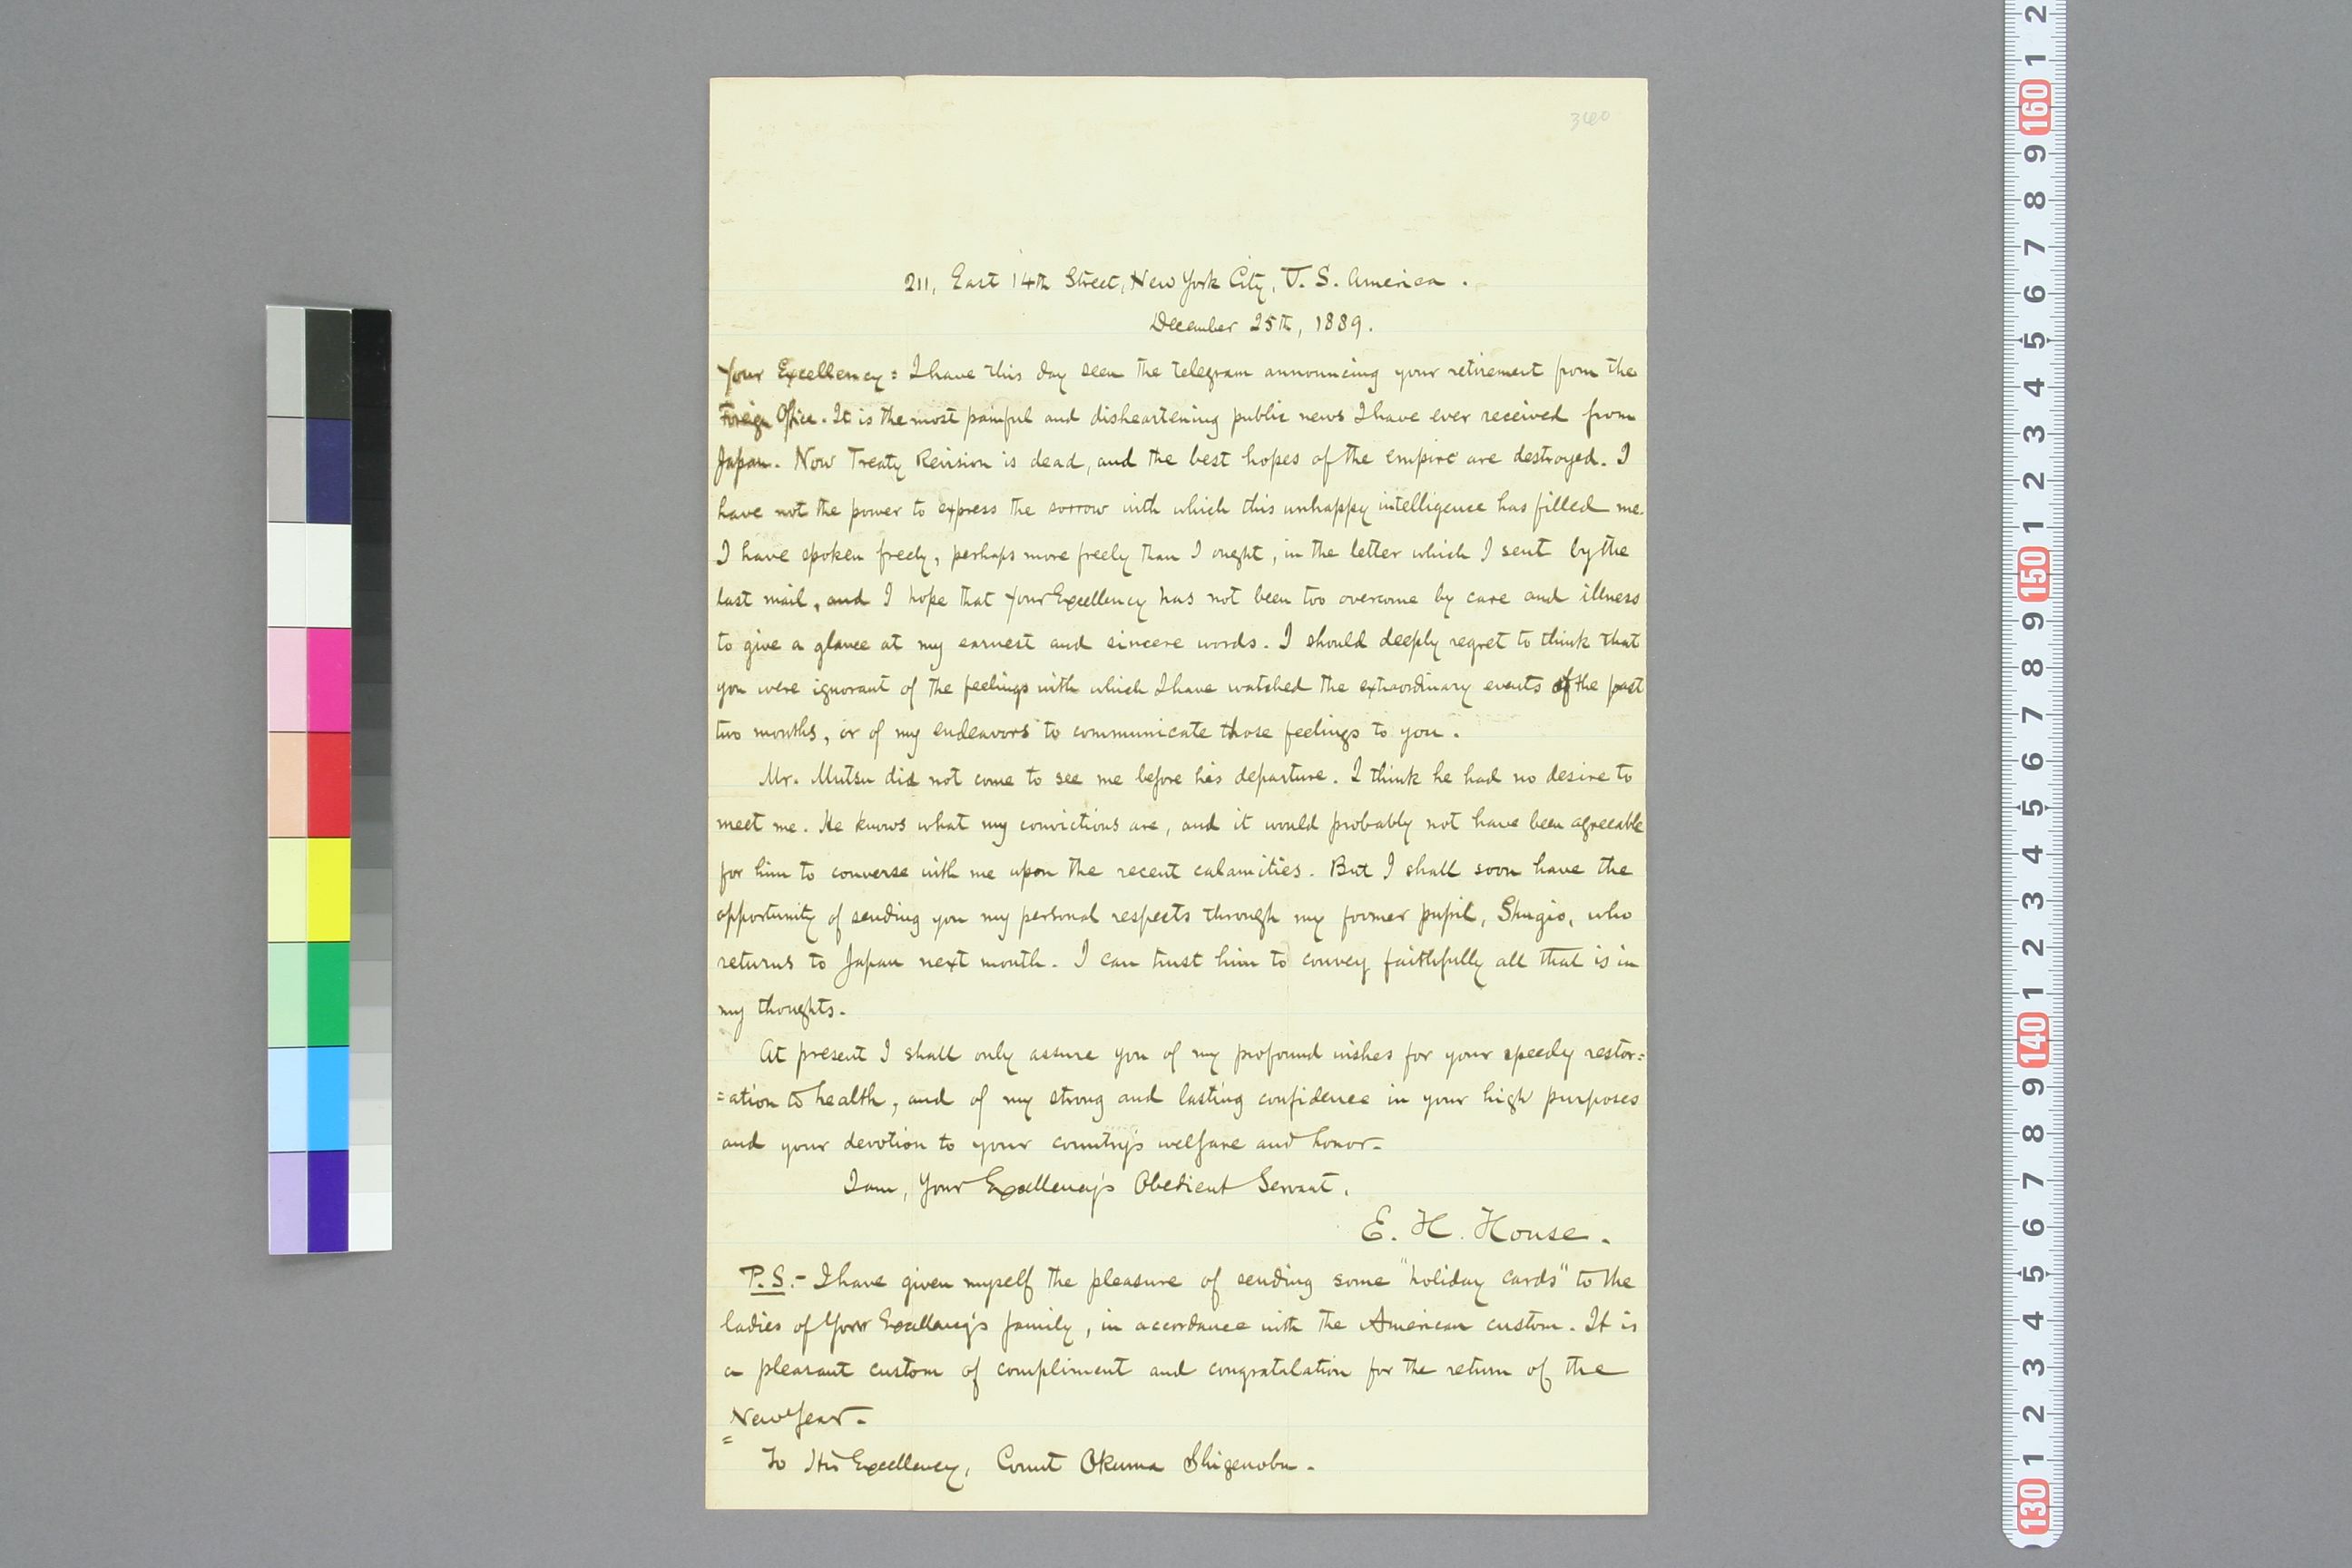 360
211, East 14th Street, New York City, U. S. America.
December 25th, 1889.
Your Excellency: I have this day seen the telegram announcing your retirement from the
Foreign Office. It is the most painful and disheartening public news I have ever received from
Japan. Now Treaty Revision is dead, and the best hopes of the empire are destroyed. I
have not the power to express the sorrow with which this unhappy intelligence has filled me.
I have spoken freely, perhaps more freely than I ought, in the letter which I sent by the
last mail, and I hope that Your Excellency has not been too overcome by care and illness
to give a glance at my earnest and sincere words. I should deeply regret to think that
you were ignorant of the feelings with which I have watched the extraordinary events of the past
two months, or of my endeavors to communicate those feelings to you.
Mr. Mutsu did not come to see me before his departure. I think he had no desire to
meet me. He knows what my convictions are, and it would probably not have been agreeable
for him to converse with me upon the recent calamities. But I shall soon have the
opportunity of sending you my personal respects through my former pupil, Shugio, who
returns to Japan next month. I can trust him to convey faithfully all that is in
my thoughts.
At present I shall only assure you of my profound wishes for your speedy restor=
=ation to health, and of my strong and lasting confidence in your high purposes
and your devotion to your country's welfare and honor.
I am, Your Excellency's Obedient Servant,
E. H. House.
P.S.- I have given myself the pleasure of sending some "holiday cards" to the
ladies of Your Excellency's family, in accordance with the American custom. It is
a pleasant custom of compliment and congratulation for the return of the
New Year.
To His Excellency, Count Okuma Shigenobu.
2 1 160 9 8 7 6 5 4 3 2 1 150 9 8 7 6 5 4 3 2 1 140 9 8 7 6 5 4 3 2 1 130